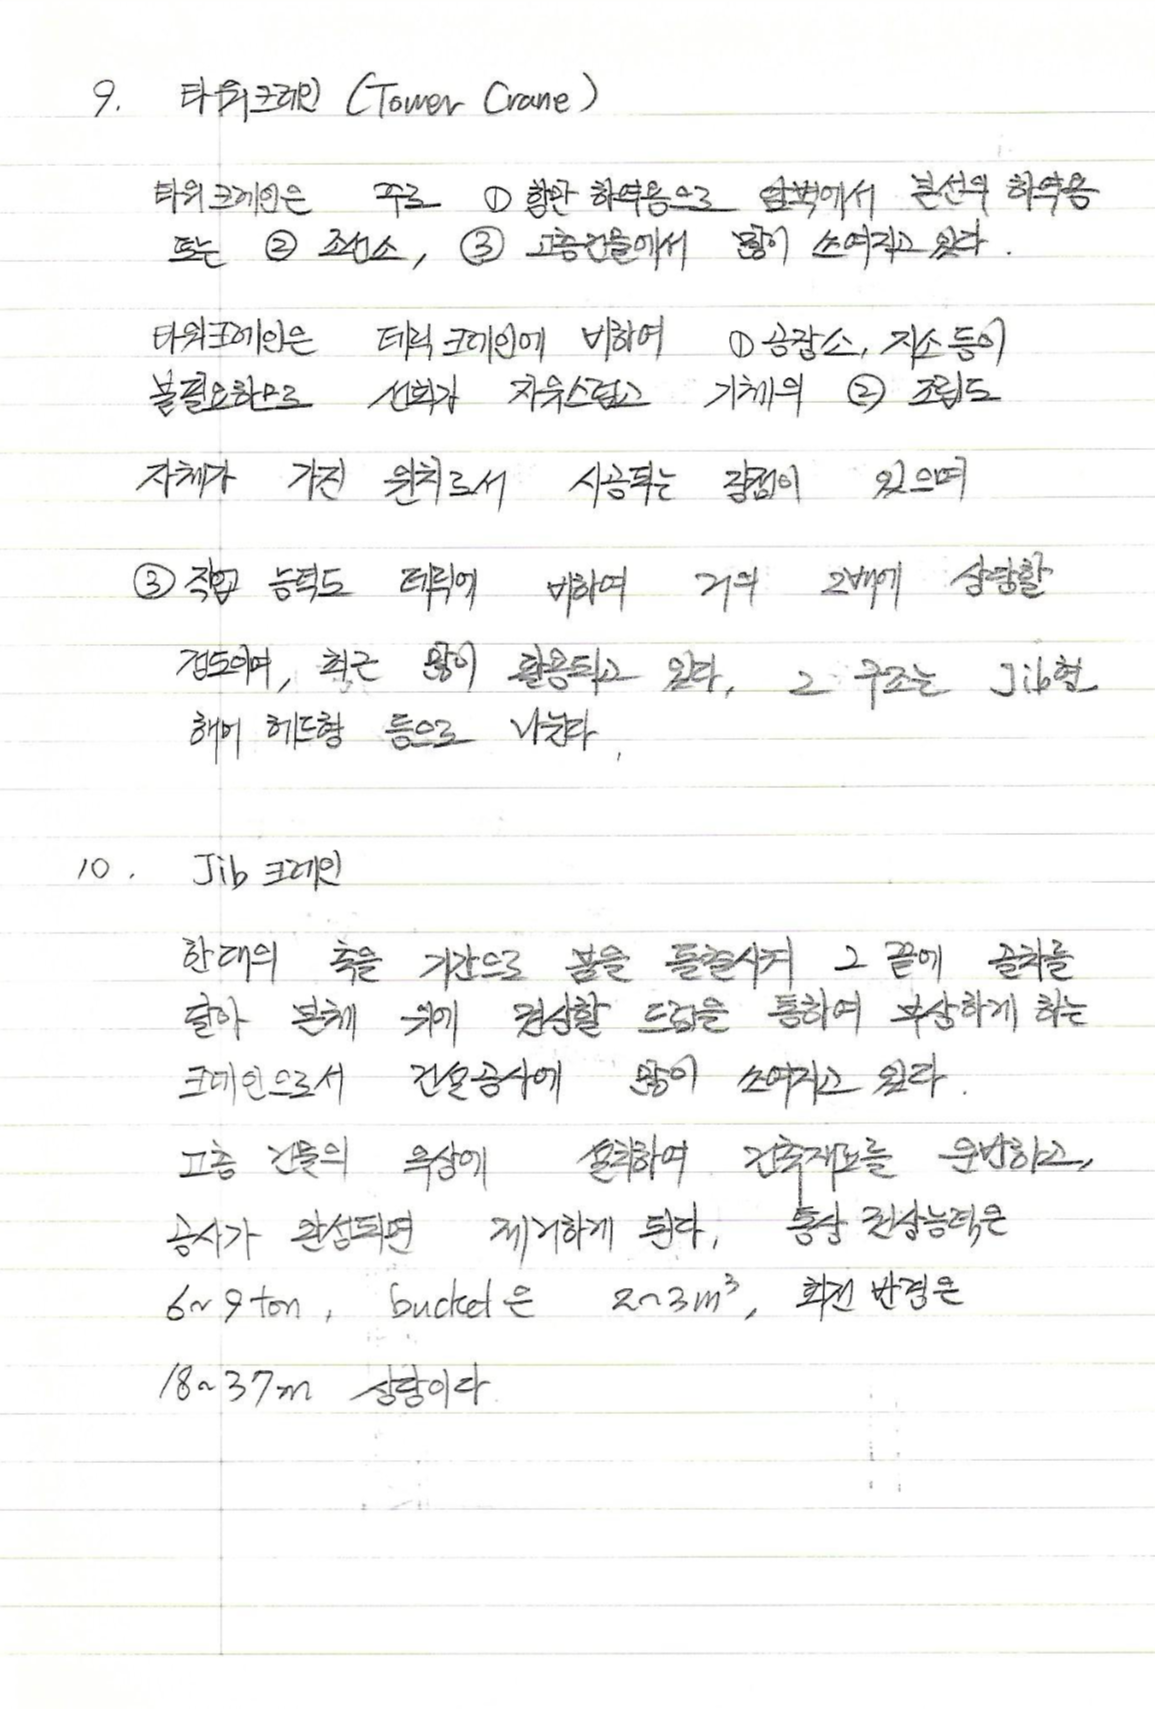 9. 타워크레인 (Tower Crane)
타워크레인은 주로 ① 항만 하역용으로 암벽에서 본선의 하역용
또는 ② 조선소, ③ 고층건물에서 많이 쓰여지고 있다.
타워크레인은 데릭 크레인에 비하여 ① 공장소, 지소등이
불필요하므로 선회가 자유스럽고 기체의 ② 조립도
자체가 가진 윈치로서 시공되는 장점이 있으며
③ 작업 능력도 데릭에 비하여 거의 2배에 상당할
정도이며, 최근 많이 활용되고 있다, 그 구조는 Jib형
해머 헤드형 등으로 나눈다.
10. Jib 크레인
한대의 축을 기간으로 붐을 돌출시켜 그 끝에 골차를
달아 본체 위에 권상할 드럼을 통하여 부상하게 하는
크레인으로서 건설공사에 많이 쓰여지고 있다.
고층 건물의 옥상에 설치하여 건축재료를 운반하고,
공사가 완성되면 제거하게 된다, 통상 권상능력은
6~9ton, bucket은 2~3m³, 회전 반경은
18~37m 상당이다